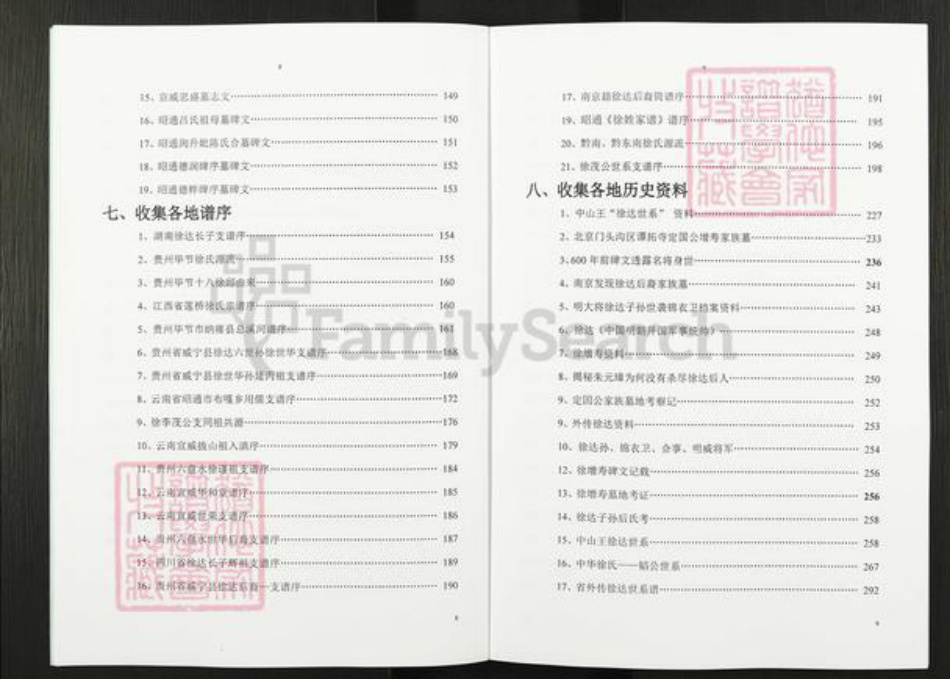 15、宣威思盛墓志文 149
16、昭通吕氏祖母墓碑文 150
17、昭通洵升妣陈氏合墓碑文 151
18、昭通德润碑序墓碑文 152
19、昭通德粹碑序墓碑文 153
七、收集各地谱序
1、湖南徐达长子支谱序 154
2、贵州毕节徐氏源流 155
3、贵州毕节十八徐郎由来 160
4、江西省莲桥徐氏宗谱序 160
5、贵州毕节市纳雍县总溪河谱序 161
6、贵州省威宁县徐达六世孙徐世华支谱序 168
7、贵州省威宁县徐世华孙廷丙祖支谱序 169
8、云南省昭通市布嘎乡用儒支谱序 172
9、徐李茂公支同祖共源 176
10、云南宣威拔山祖入滇序 179
11、贵州六盘水徐谨祖支谱序 184
12、云南宣威华和堂谱序 185
13、云南宣威世荣支谱序 186
14、贵州六盘水世华后裔支谱序 187
15、四川省徐达长子辉祖支谱序 189
16、贵州省威宁县徐达后裔一支谱序 190
8
17、南京籍徐达后裔简谱序 191
19、昭通《徐姓家谱》谱序 195
20、黔南、黔东南徐氏源流 196
21、徐茂公世系支谱序 198
八、收集各地历史资料
1、中山王“徐达世系” 资料 227
2、北京门头沟区潭拓寺定国公增寿家族墓 233
3、600 年前碑文透露名将身世 236
4、南京发现徐达后裔家族墓 241
5、明大将徐达子孙世袭锦衣卫档案资料 243
6、徐达《中国明朝开国军事统帅》 248
7、徐增寿资料 249
8、揭秘朱元璋为何没有杀尽徐达后人 250
9、定国公家族墓地考察记 252
9、外传徐达资料 253
10、徐达孙、锦衣卫、佥事、明威将军 254
12、徐增寿碑文记载 256
13、徐增寿墓地考证 256
14、徐达子孙后氏考 258
15、中山王徐达世系 258
16、中华徐氏——韬公世系 267
17、省外传徐达世系谱 292
9
FamilySearch